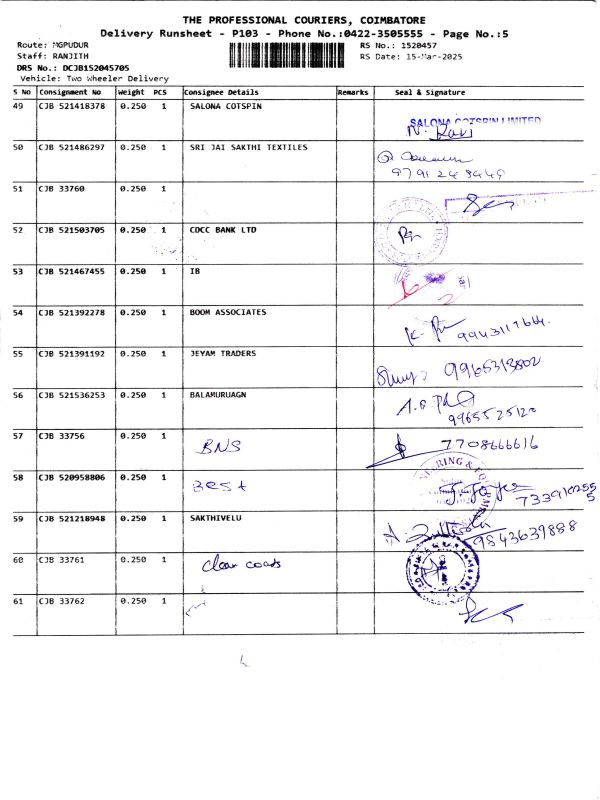 THE PROFESSIONAL COURIERS, COIMBATORE
Delivery Runsheet - P103 - Phone No.:0422-3505555 - Page No.:5
Route: MGPUDUR RS No.: 1520457
Staff: RANJITH RS Date: 15-Mar-2025
DRS No.: DCJB152045705
Vehicle: Two Wheeler Delivery
S No Consignment No Weight PCS Consignee Details Remarks Seal & Signature
49 CJB 521418378 0.250 1 SALONA COTSPIN
SALONA COTSPIN LIMITED
N. Ravi
50 CJB 521486297 0.250 1 SRI JAI SAKTHI TEXTILES
9791248449
51 CJB 33760 0.250 1
52 CJB 521503705 0.250 1 CDCC BANK LTD
53 CJB 521467455 0.250 1 IB
54 CJB 521392278 0.250 1 BOOM ASSOCIATES
9943117664
55 CJB 521391192 0.250 1 JEYAM TRADERS
9965318802
56 CJB 521536253 0.250 1 BALAMURUAGN
9965525120
57 CJB 33756 0.250 1 BNS 7708666616
58 CJB 520958806 0.250 1 Best
7339102555
59 CJB 521218948 0.250 1 SAKTHIVELU
9843639888
60 CJB 33761 0.250 1 clear coads
61 CJB 33762 0.250 1